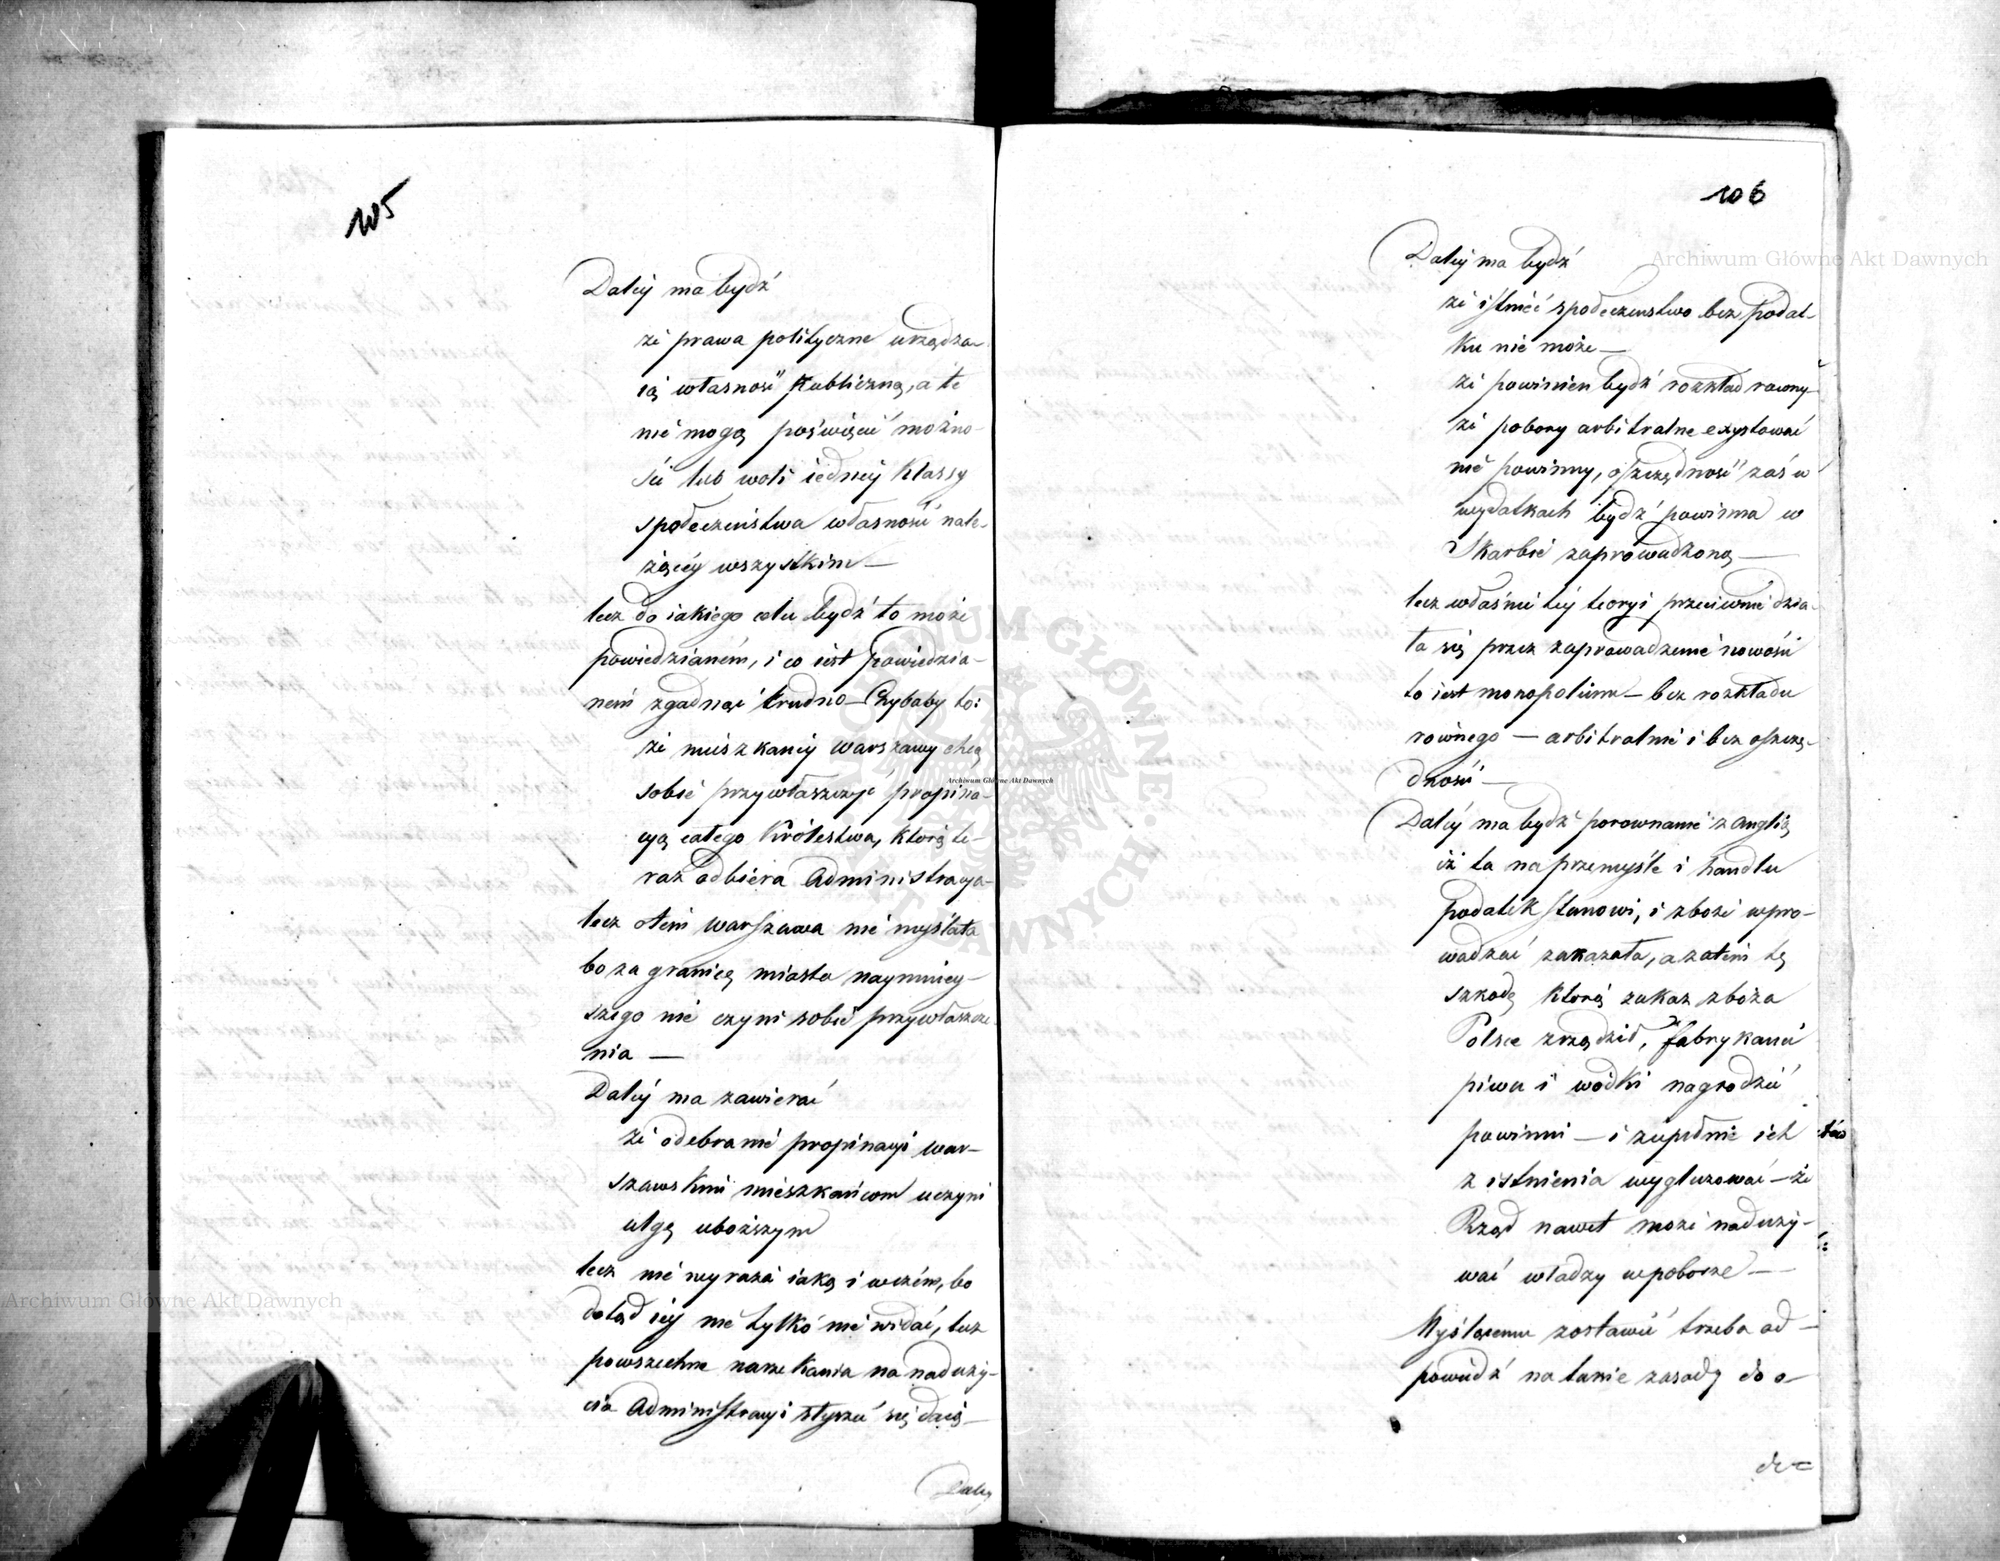 105
Daléy ma bydź
że prawa polityczne urządza-
ią własność Publiczną, a te
nie mogą poświęcić możno-
ści lub woli iednéy Klassy
społeczeństwa własność nale-
żącéy wszystkim —
lecz do iakiego celu bydź to może
powiedzianém, i co iest powiedzia-
nem zgadnąć trudno — Chybaby to:
że mieszkańcy Warszawy chcą
sobie przywłaszczyć propina-
cyą całego Królestwa, którą te-
raz odbiera Administracya —
lecz otem Warszawa nie myślała
bo za granicę miasta naymniey-
szego nie czyni sobie przywłaszcze-
nia —
Daléy ma zawierać
że odebranie propinacyi War-
szawskim mieszkańcom uczyni
ulgę uboższym
lecz nie wyraża iaką i wczém, bo
dotąd iéy nie tylko nie widać, lecz
powszechne narzekania na naduży-
cia Administracyi słyszeć się daią —
Daléy
106
Daléy ma bydź
że istnieć społeczeństwo bez Podat-
ku nie może —
że powinien bydź rozkład rowny
że pobory arbitralne exystować
nie powinny, oszczędność zaś w
wydatkach bydź powinna w
Skarbie zaprowadzoną —
lecz właśnie téy teoryi przeciwnie dzia-
ła się przez zaprowadzenie nowości
to iest monopolium — bez rozkładu
rownego — arbitralnie i bez oszczę-
dności —
Daléy ma bydź porownanie z Anglią
iż ta na przemyśle i handlu
podatek stanowi, i zboże wpro-
wadzać zakazała, a zatém tę
szkodę którą zakaz zboża
Polsce zrządził, fabrykanci
piwa i wodki nagrodzić
powinni — i zupełnie ich
z istnienia wygluzować — że
Rząd nawet może naduży-
wać władzy wpoborze —
Myślącemu zostawić trzeba od-
powiedź na takie zasady do o-
Archiwum Główne Akt Dawnych
Archiwum Główne Akt Dawnych
Archiwum Główne Akt Dawnych
ARCHIWUM GŁÓWNE AKT DAWNYCH